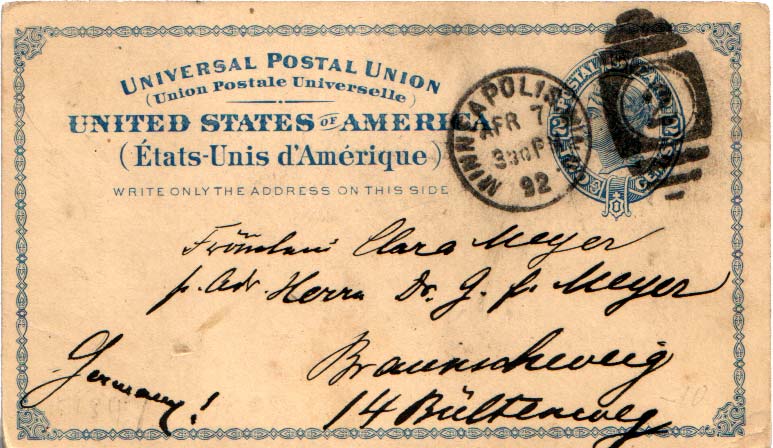 UNIVERSAL POSTAL UNION
(Union Postale Universelle)
UNITED STATES OF AMERICA
(États-Unis d'Amérique)
WRITE ONLY THE ADDRESS ON THIS SIDE
MINNEAPOLIS MINN
APR 7
330PM
92
Fräulein Clara Meyer
p. Adr. Herrn Dr. G. f. Meyer
Braunschweig
Germany!
14 Bültenweg